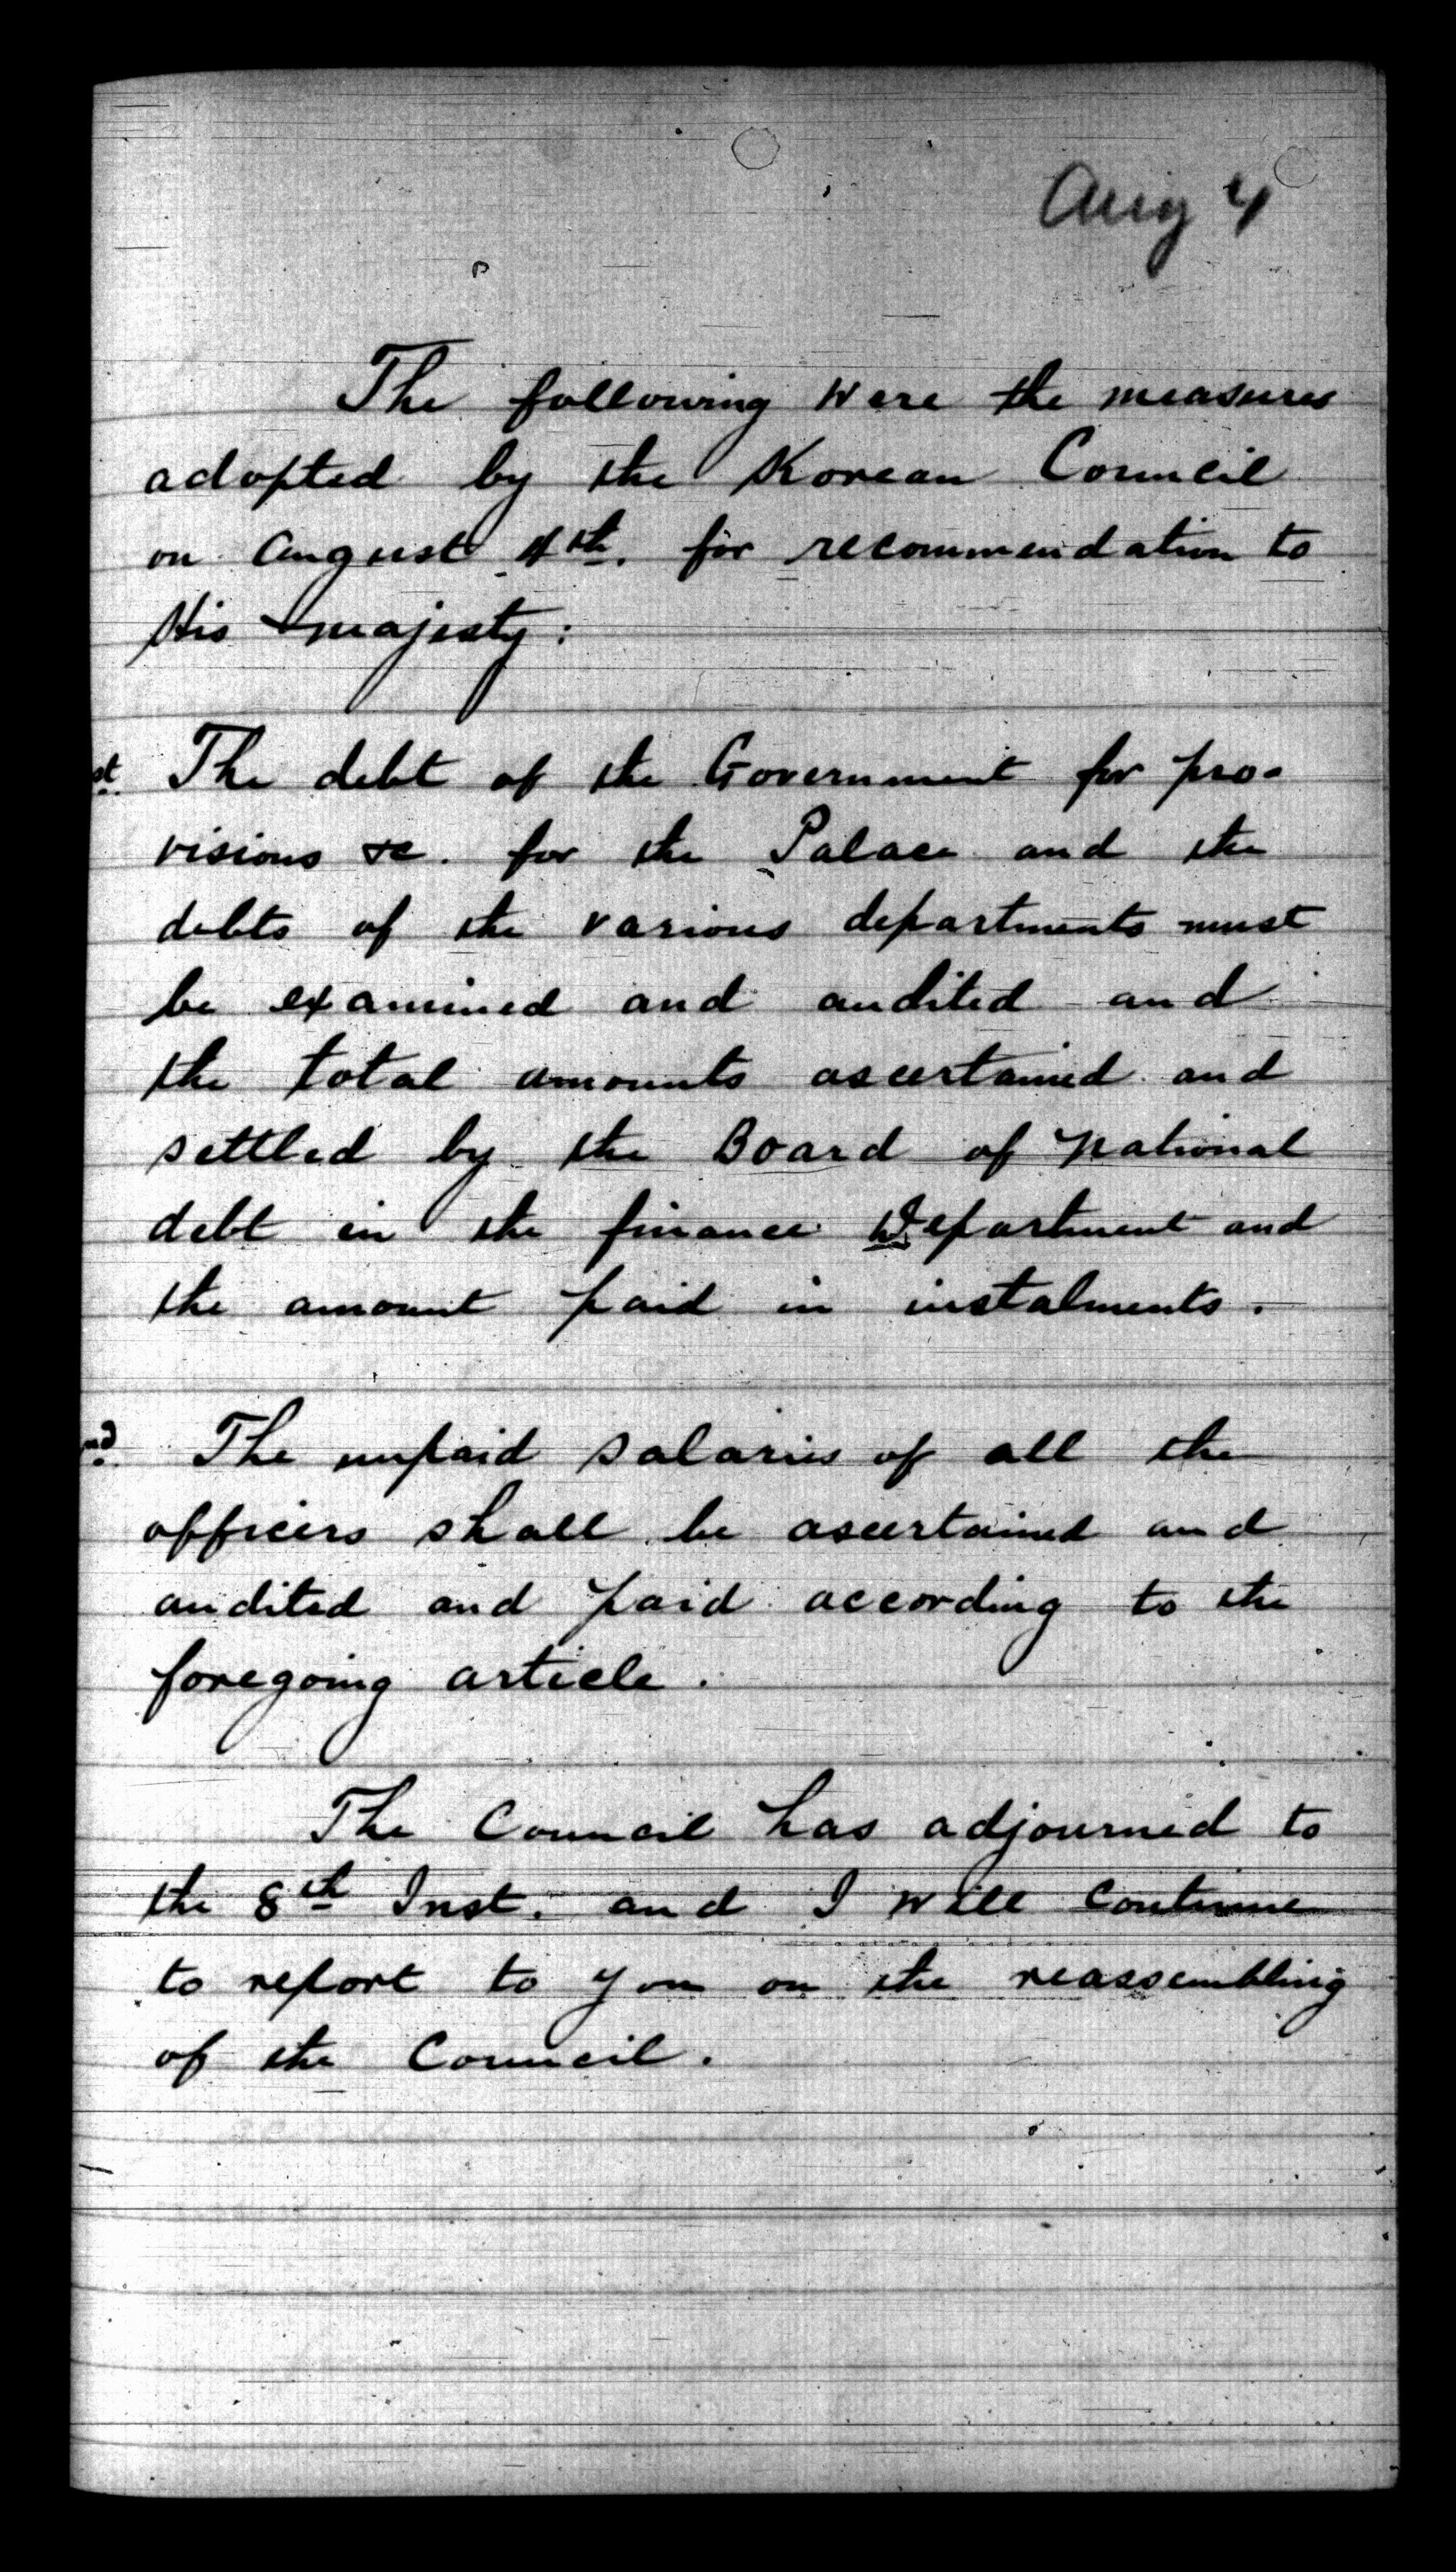 Aug 4
The following were the measures
adopted by the Korean Council
on August 4th. for recommendation to
His Majesty:
st. The debt of the Government for pro-
visions &c. for the Palace and the
debts of the various departments must
be examined and audited and
the total amounts ascertained and
settled by the Board of National
debt in the finance Department and
the amount paid in instalments.
nd. The unpaid salaries of all the
officers shall be ascertained and
audited and paid according to the
foregoing article.
The Council has adjourned to
the 8th Inst. and I will continue
to report to you on the reassembling
of the Council.